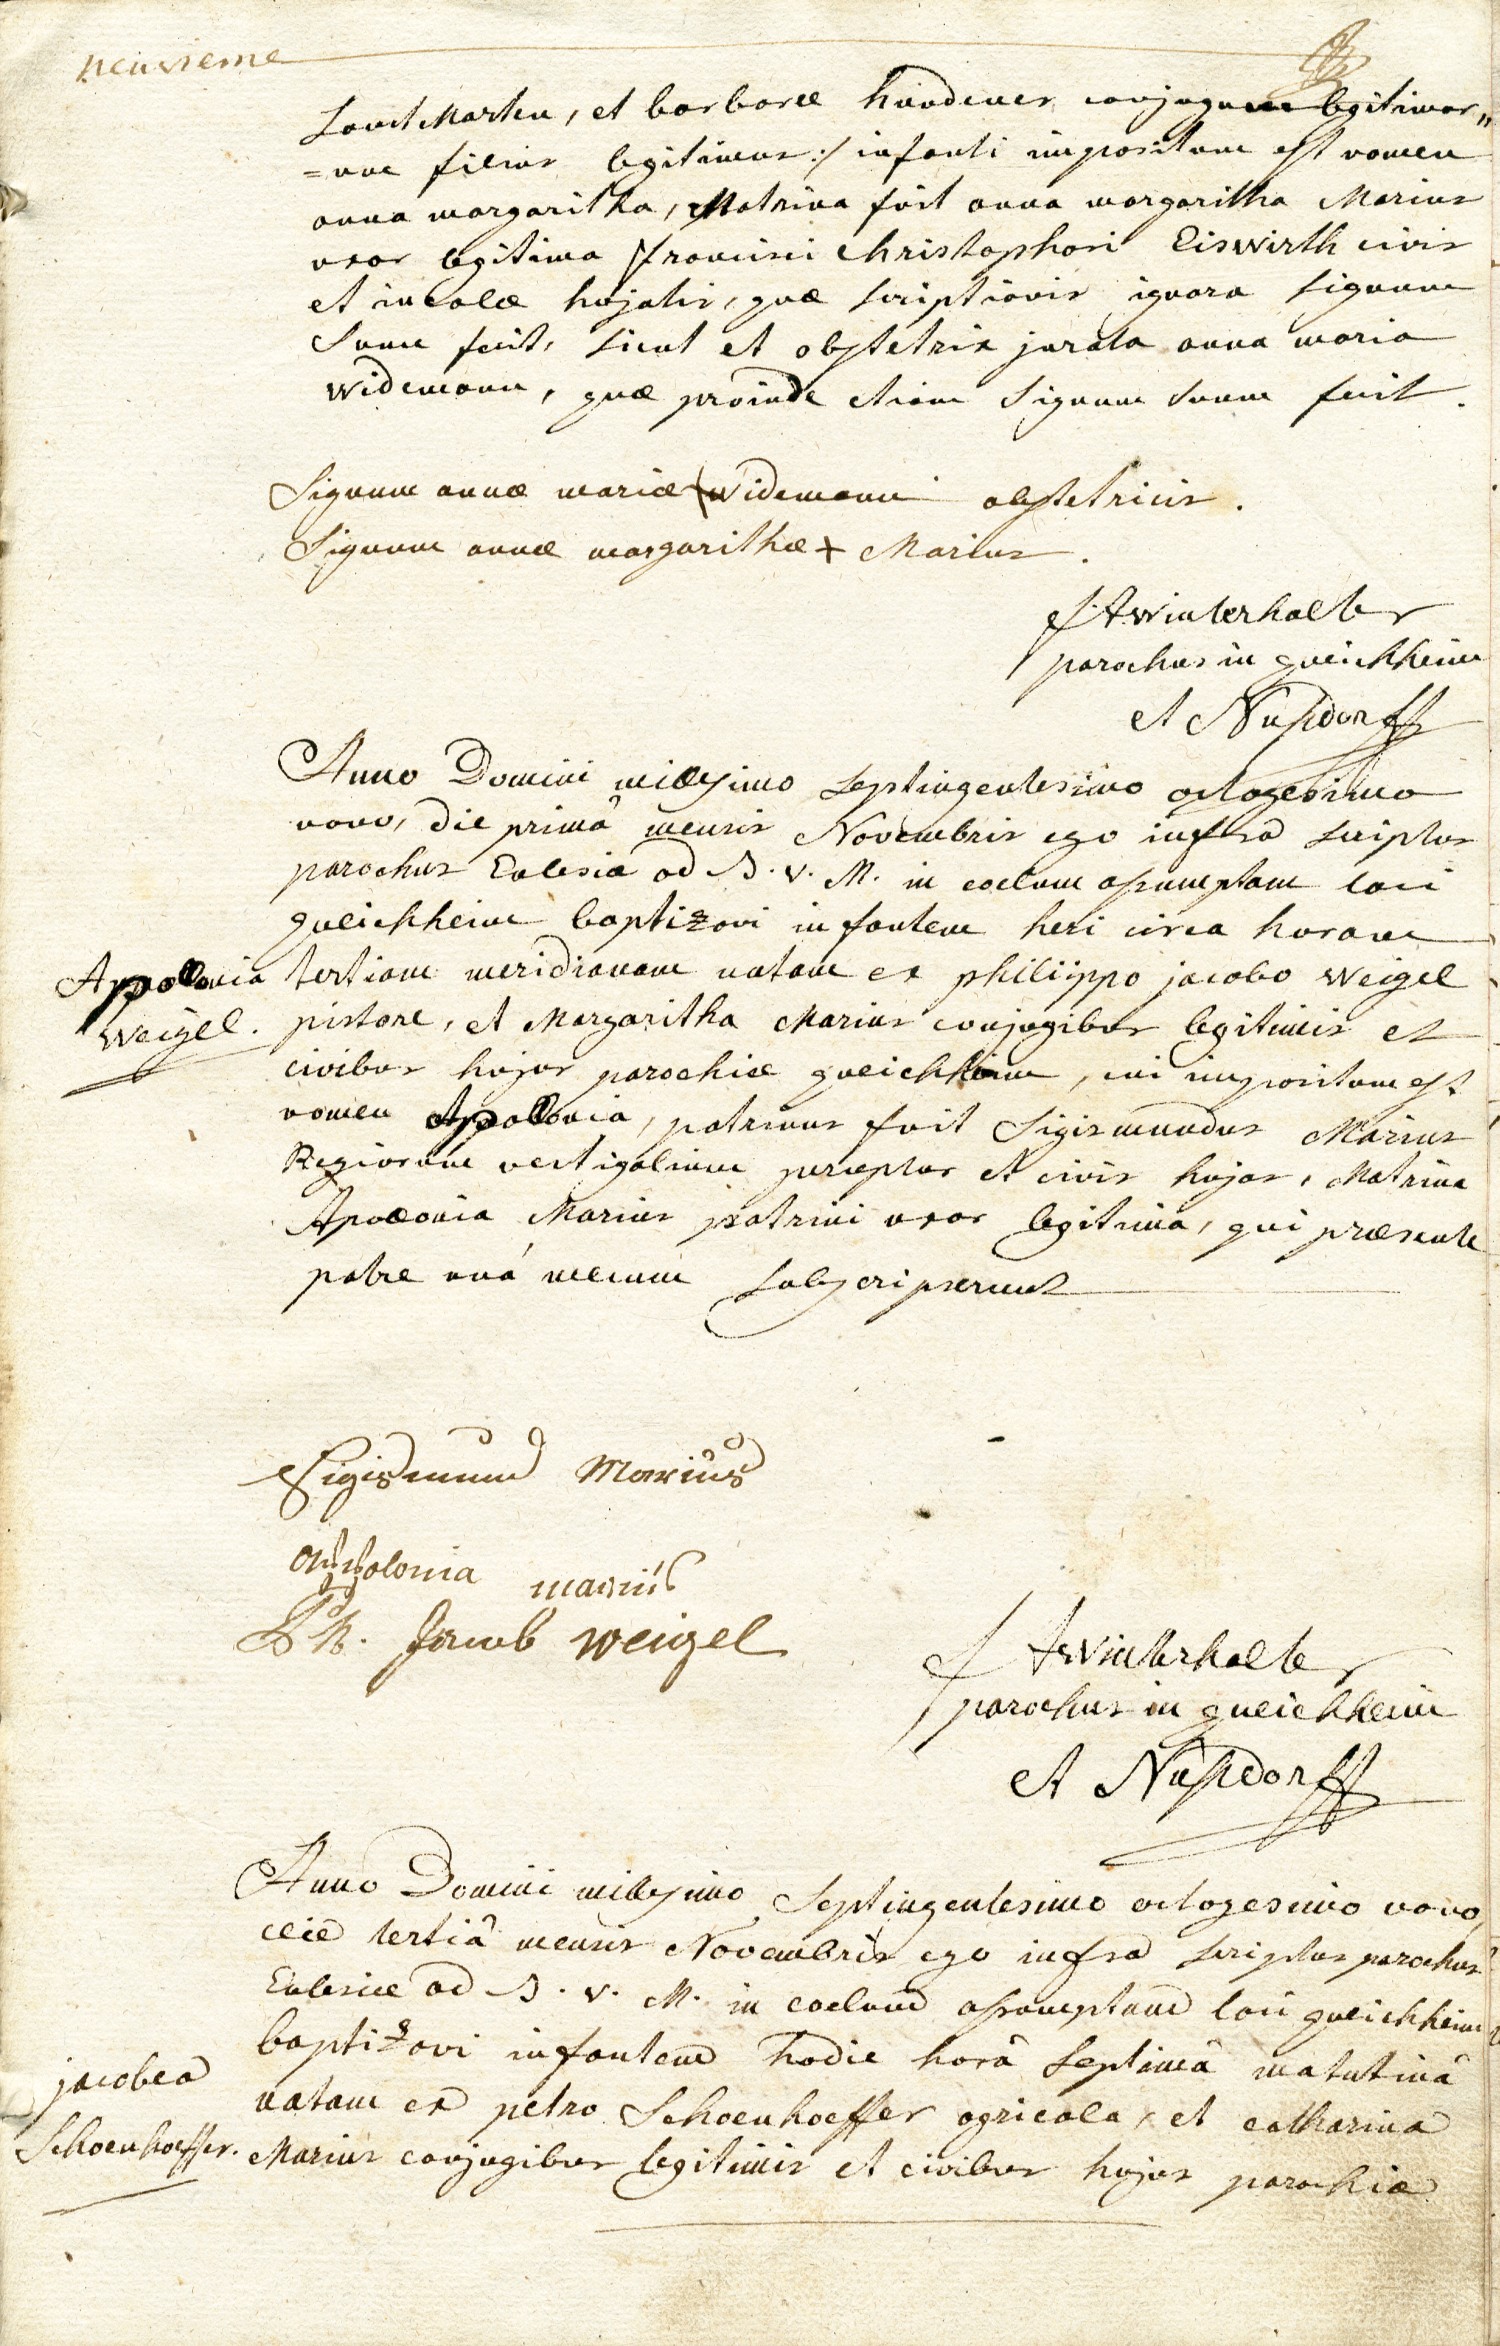 neuvieme
et barbaræ hundemer conjugum legitimor„
=um filius legitimus :/ infanti impositum est nomen
anna margaritha, Matrina fuit anna margaritha Marius
uxor legitima francisci Christophori Eiswirth civis
et incolæ hujatis, quæ scriptionis ignara signum
suum fecit, sicut et obstetrix jurata anna maria
Widemann, quæ proinde etiam signum suum fecit.
Signum annæ mariæ + Widemann obstetricis.
Signum annæ margarithæ + Marius.
J A Winterhalter
parochus in queichheim
et Nusdorff
Anno Domini millesimo septingentesimo octogesimo
nono, die primâ mensis Novembris ego infra scriptus
parochus Eclesiæ ad B. v. M. in coelum assumptam loci
queichheim baptizavi infantem heri circa horam
Appollonia
Weigel.
tertiam meridianam natam ex philippo jacobo Weigel
pistore, et Margaritha Marius conjugibus legitimis et
civibus hujus parochiæ queichheim, cui impositum est
nomen Apollonia, patrinus fuit Sigismundus Marius
Regiorum vectigalium perceptor et civis hujas, Matrina
Apollonia Marius patrini uxor legitima, qui præsente
patre unà mecum subscripserunt
Sigismund Marius
appolonia mariüs
Ph. Jacob Weigel
J A Winterhalter
parochus in queichheim
et Nusdorff
Anno Domini millesimo septingentesimo octogesimo nono,
die tertiâ mensis Novembris ego infra scriptus parochus
Eclesiæ ad B. v. M. in coelum assumptam loci queichheim
baptizavi infantem hodie horâ septimâ matutinâ
jacobea
Schoenhoeffer.
natam ex petro Schoenhoeffer agricola, et catharina
Marius conjugibus legitimis et civibus hujus parochiæ